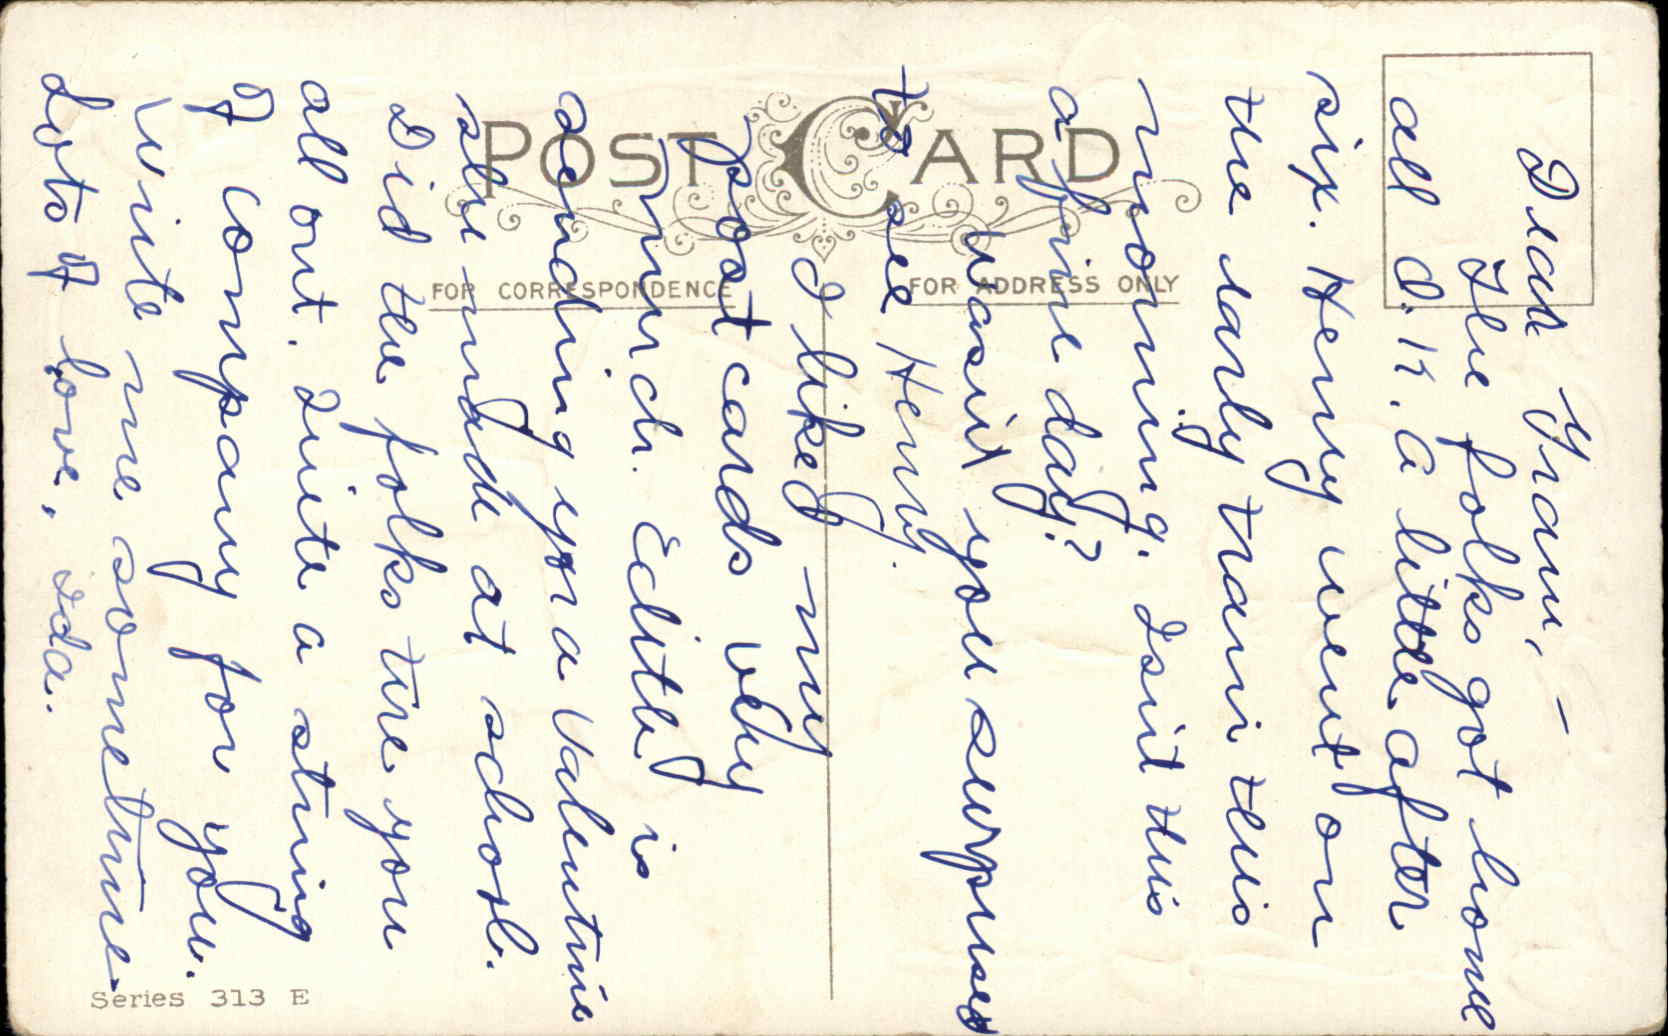 POST CARD
FOR CORRESPONDENCE
FOR ADDRESS ONLY
Dear Fram, —
The folks got home
all O.K. a little after
six. Henry went on
the early train this
morning. Isnt this
a fine day?
Wasnt you surprised
to see Henry.
I liked my
post cards very
much. Edith is
sending you a Valentine
she made at school.
Did the folks tire you
all out. Quite a string
of company for you.
Write me sometime.
Lots of love, Ida.
Series 313 E